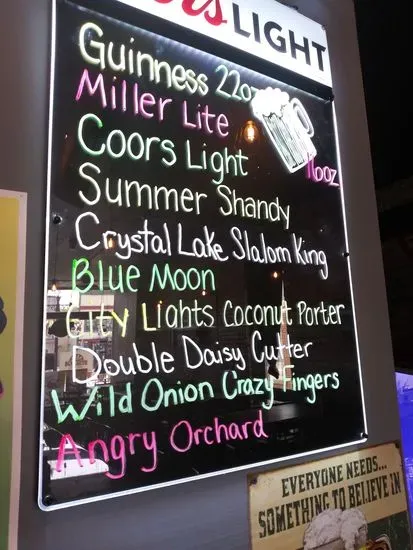 LIGHT
Guinness 22oz
Miller Lite
16oz
Coors Light
Summer Shandy
Crystal Lake Slalom King
Blue Moon
City Lights Coconut Porter
Double Daisy Cutter
Wild Onion Crazy Fingers
Angry Orchard
EVERYONE NEEDS...
SOMETHING TO BELIEVE IN